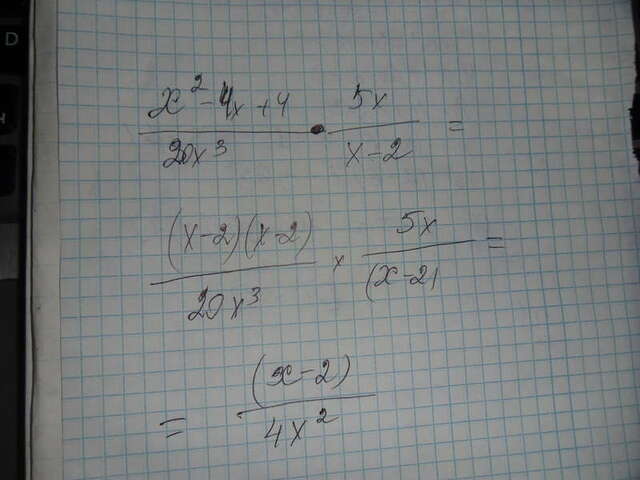 D
x² - 4x + 4 / 20x³ • 5x / x - 2 =
(x - 2)(x - 2) / 20x³ × 5x / (x - 2) =
= (x - 2) / 4x²